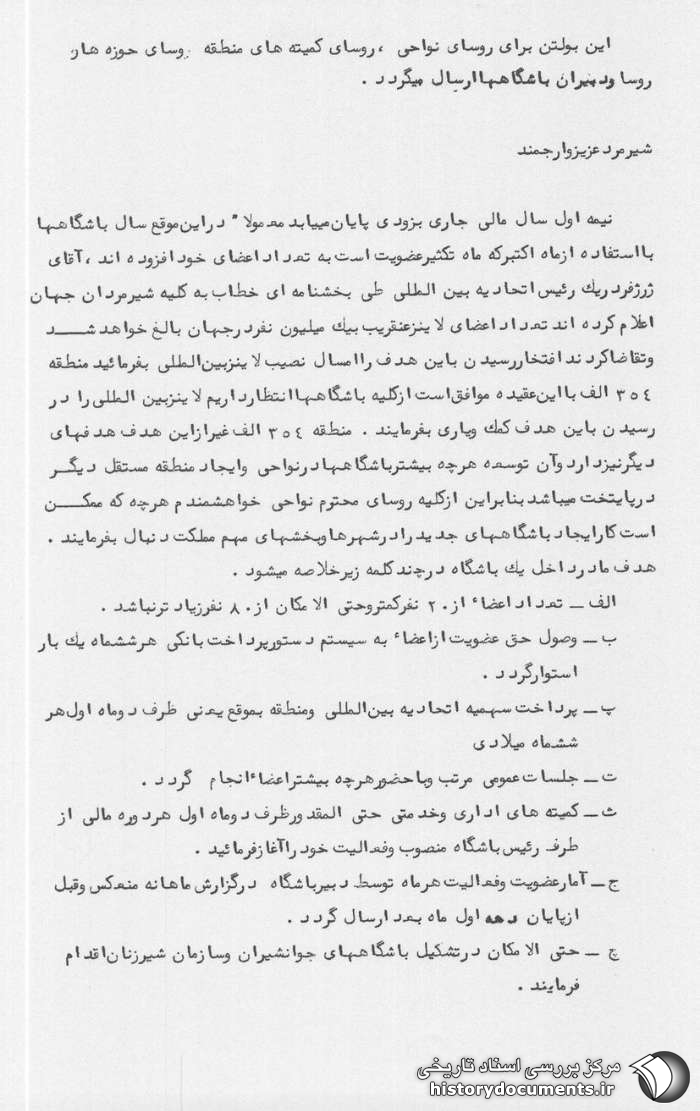 این بولتن برای روسای نواحی ، روسای کمیته های منطقه روسای حوزه هاو
روسا ودبیران باشگاهها ارسال میگردد .
شیرمرد عزیز وارجمند
نیمه اول سال مالی جاری بزودی پایان مییابد معمولا" دراین موقع سال باشگاهها
بااستفاده ازماه اکتبرکه ماه تکثیرعضویت است به تعداد اعضای خود افزوده اند ، آقای
ژرژفردریك رئیس اتحادیه بین المللی طی بخشنامه ای خطاب به کلیه شیرمردان جهان
اعلام کرده اند تعداد اعضای لاینزعنقریب بیك میلیون نفردرجهان بالغ خواهد شد
وتقاضاکردند افتخاررسیدن باین هدف راامسال نصیب لاینزبین المللی بفرمائید منطقه
۳۵٤ الف بااین عقیده موافق است ازکلیه باشگاهها انتظارداریم لاینزبین المللی را در
رسیدن باین هدف کمك ویاری بفرمایند . منطقه ۳۵٤ الف غیرازاین هدف هدفهای
دیگرنیزدارد وآن توسعه هرچه بیشترباشگاهها درنواحی وایجاد منطقه مستقل دیگر
درپایتخت میباشد بنابراین ازکلیه روسای محترم نواحی خواهشمندم هرچه که ممکن
است کارایجاد باشگاههای جدید رادرشهرها وبخشهای مهم مملکت دنبال بفرمایند .
هدف مادرداخل یك باشگاه درچند کلمه زیرخلاصه میشود .
الف ــ تعداد اعضاء از ۲۰ نفرکمتروحتی الامکان از ۸۰ نفرزیاد ترنباشد .
ب ــ وصول حق عضویت ازاعضاء به سیستم دستورپرداخت بانکی هرششماه یك بار
استوارگردد .
پ ــ پرداخت سهمیه اتحادیه بین المللی ومنطقه بموقع یعنی ظرف دوماه اول هر
ششماه میلادی
ت ــ جلسات عمومی مرتب وباحضورهرچه بیشتراعضاء انجام گردد .
ث ــ کمیته های اداری وخدمتی حتی المقدورظرف دوماه اول هردوره مالی از
طرف رئیس باشگاه منصوب وفعالیت خود راآغازفرمائید .
ج ــ آمارعضویت وفعالیت هرماه توسط دبیرباشگاه درگزارش ماهانه منعکس وقبل
ازپایان دهه اول ماه بعد ارسال گردد .
چ ــ حتی الامکان درتشکیل باشگاههای جوانشیران وسازمان شیرزنان اقدام
فرمایند .
مرکز بررسی اسناد تاریخی
historydocuments.ir